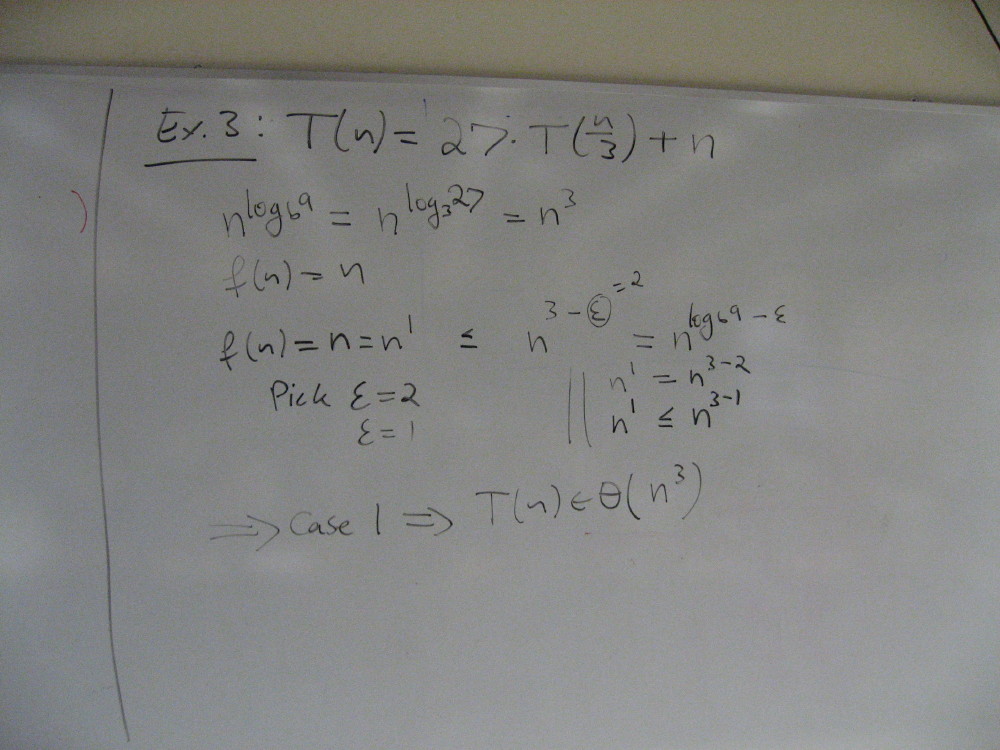 Ex. 3: T(n) = 27· T(n/3) + n
n^log_b a = n^log_3 27 = n^3
f(n) = n
f(n) = n = n^1 ≤ n^3-ε = n^log_b a - ε
= 2
Pick ε = 2
ε = 1
|| n^1 = n^3-2
|| n^1 ≤ n^3-1
⇒ Case 1 ⇒ T(n) ∈ Θ(n^3)